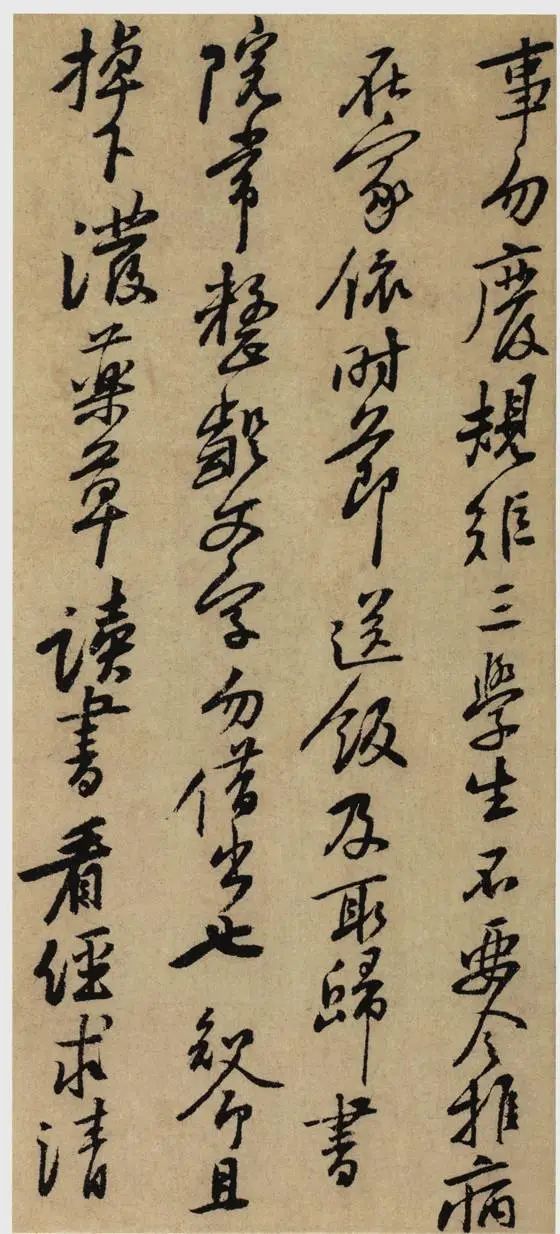 事勿廢規矩三學生不要令推病
在家依時節送飯及取歸書
院常整齪文字勿借出也知命且
掉下潑藥草讀書看經求清